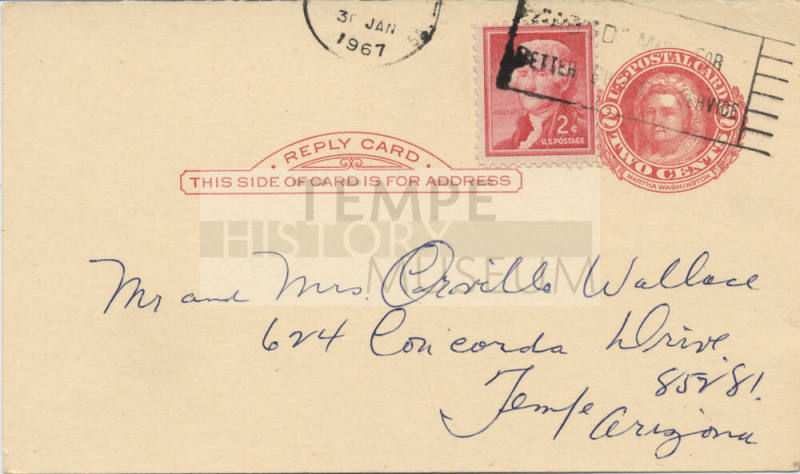 30 JAN
1967
"MZIP" MAIL FOR
BETTER
SERVICE
2¢
U.S. POSTAGE
U.S. POSTAL CARD
2 2
TWO CENTS
MARTHA WASHINGTON
REPLY CARD
THIS SIDE OF CARD IS FOR ADDRESS
TEMPE
HISTORY
MUSEUM
Mr and Mrs. Orville Wallace
624 Concorda Drive
Tempe 85281.
Arizona